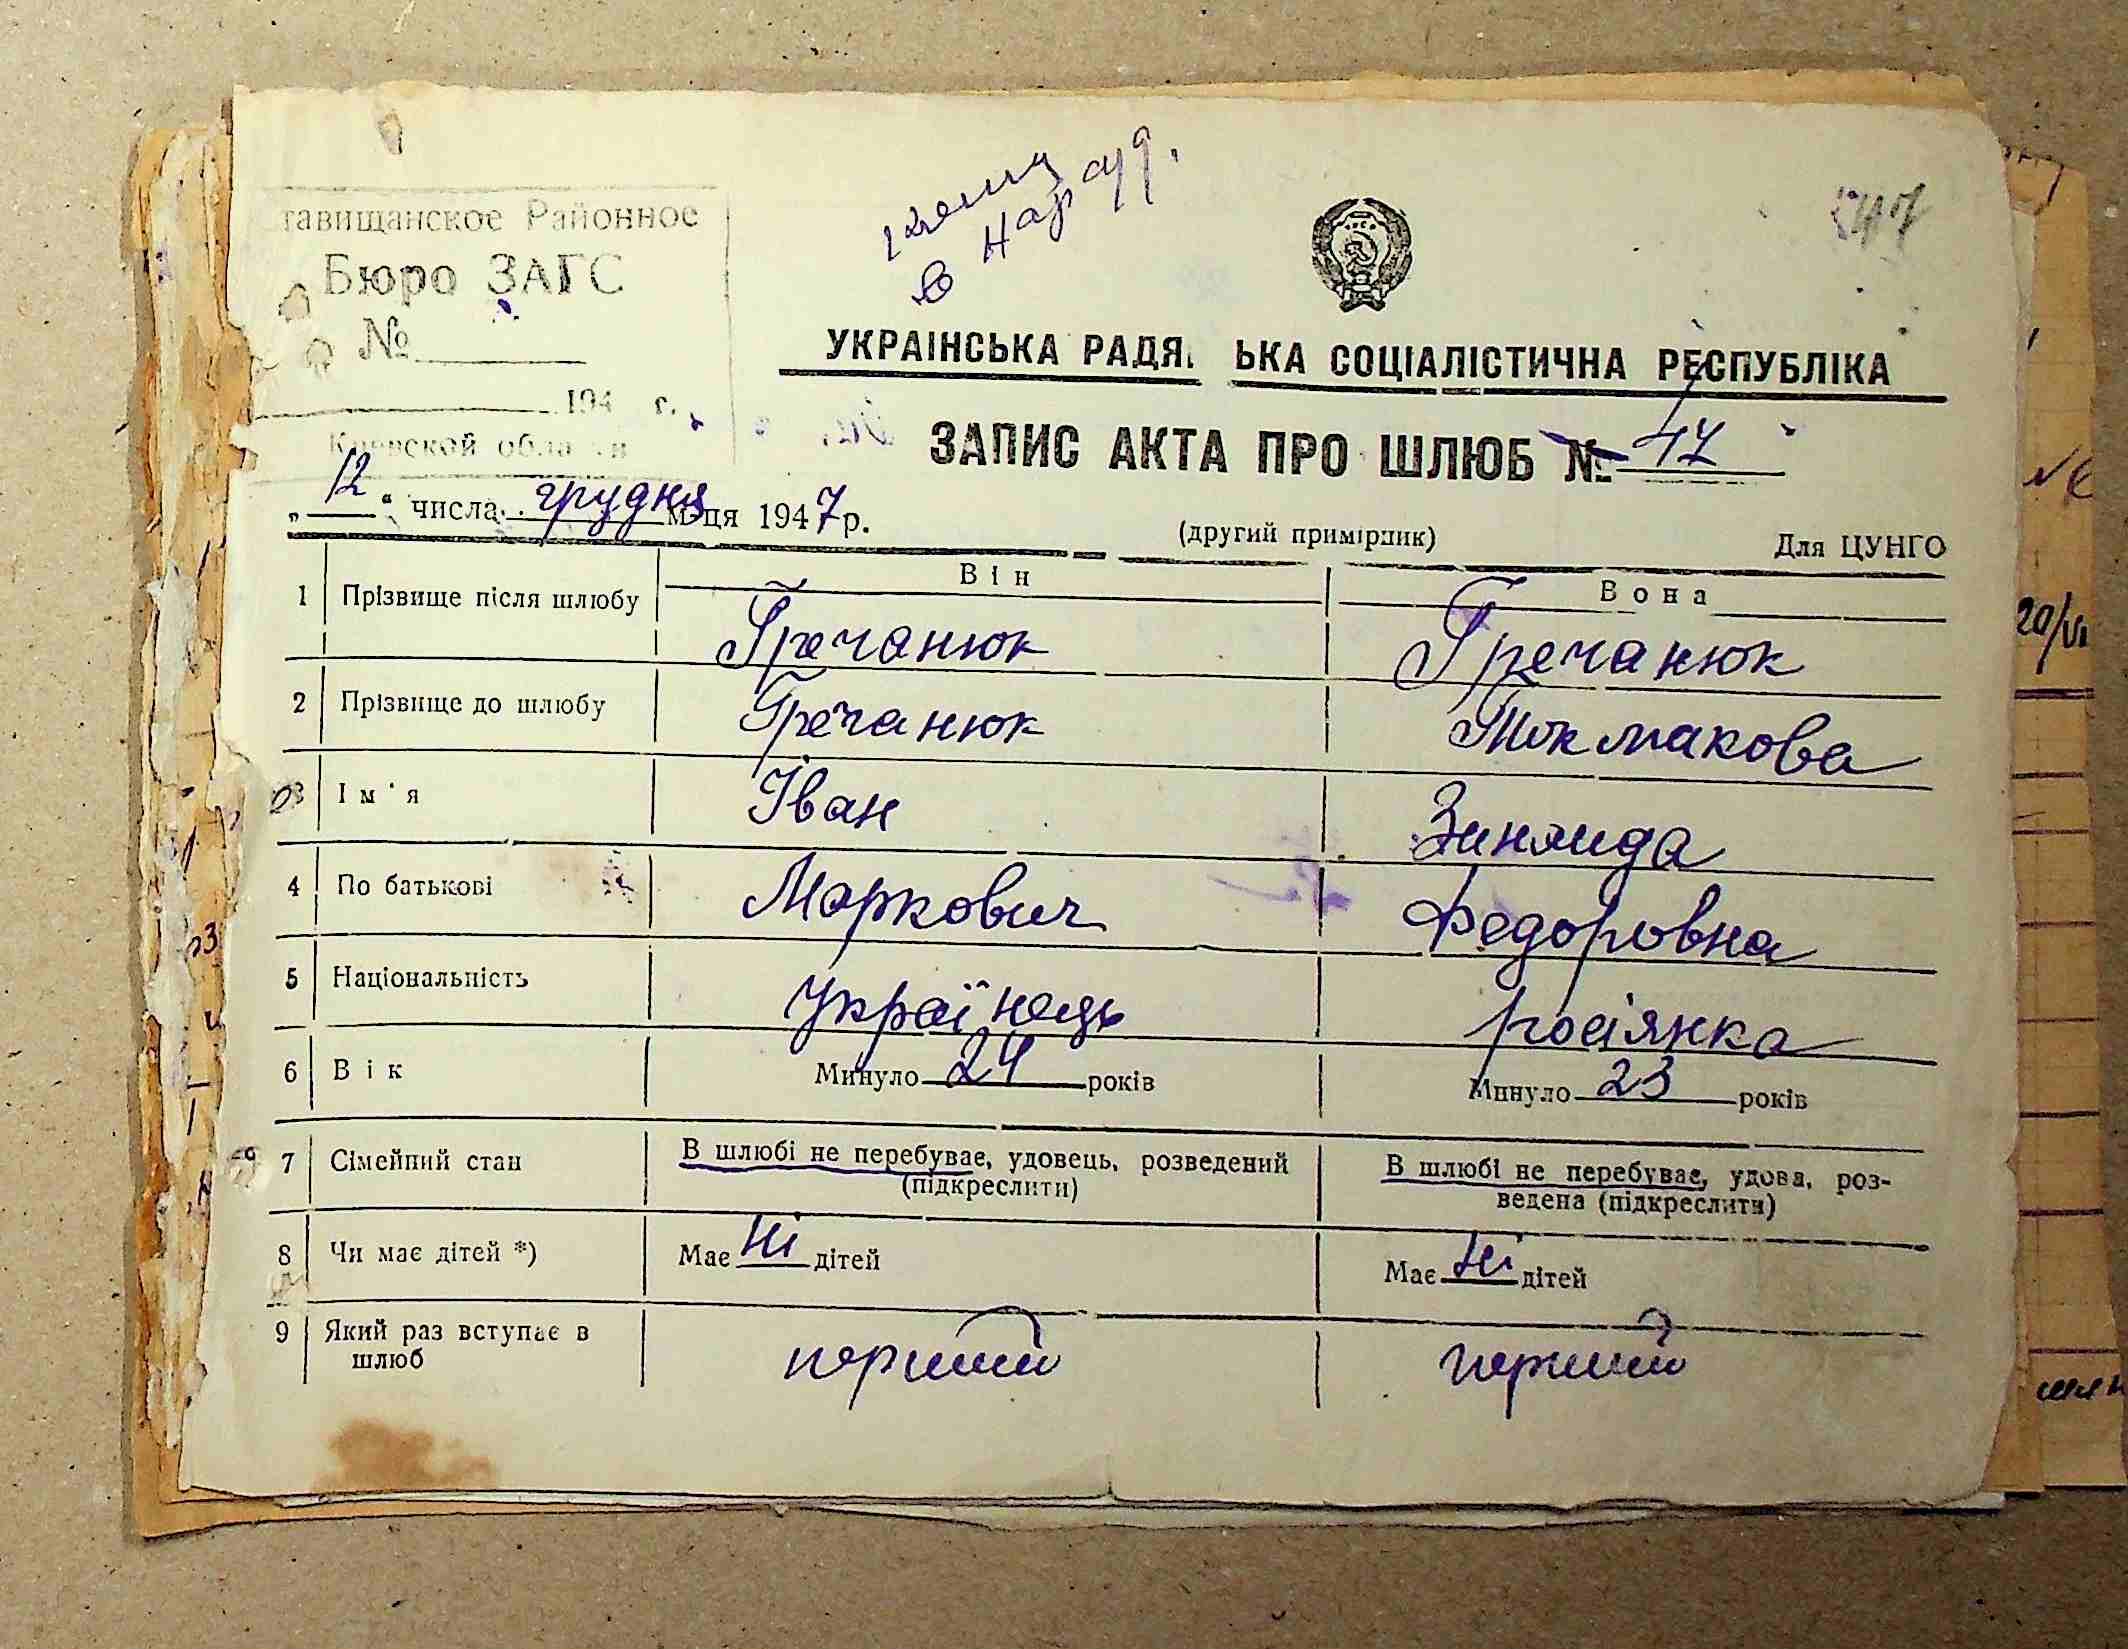 тавищанское Районное
Бюро ЗАГС
№
194 г.
Киевской области
в Нар суд.
УКРАІНСЬКА РАДЯ ЬКА СОЦІАЛІСТИЧНА РЕСПУБЛІКА
ЗАПИС АКТА ПРО ШЛЮБ № 47
„12“ числа грудня м-ця 1947 р.
(другий примірник) Для ЦУНГО
Він Вона
1 Прізвище після шлюбу Гречанюк Гречанюк
2 Прізвище до шлюбу Гречанюк Токмакова
3 Ім'я Іван Зинаида
4 По батькові Маркович Федоровна
5 Національність українець росіянка
6 Вік Минуло 24 років Минуло 23 років
7 Сімейний стан В шлюбі не перебуває, удовець, розведений (підкреслити) В шлюбі не перебуває, удова, роз-
ведена (підкреслити)
8 Чи має дітей *) Має ні дітей Має ні дітей
9 Який раз вступає в
шлюб перший перший
20/VI